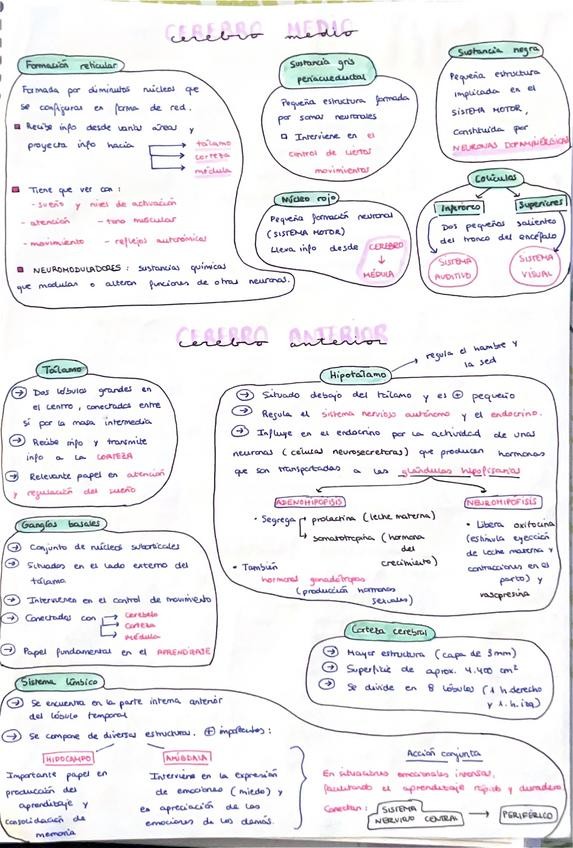 CEREBRO MEDIO
cerebro medio
Formación reticular
Formada por diminutos núcleos que
se configuran en forma de red.
Recibe info desde varias áreas y
proyecta info hacia
tálamo
corteza
médula
Tiene que ver con:
- sueño y nivel de activación
- atención - tono muscular
- movimiento - reflejos autonómicos
NEUROMODULADORES: sustancias químicas
que modulan o alteran funciones de otras neuronas.
Sustancia gris
periacueductal
Pequeña estructura formada
por somas neuronales
Interviene en el
control de ciertos
movimientos
Sustancia negra
Pequeña estructura
implicada en el
SISTEMA MOTOR,
constituida por
NEURONAS DOPAMINÉRGICAS
Núcleo rojo
Pequeña formación neuronal
(SISTEMA MOTOR)
Lleva info desde CEREBRO
↓
MÉDULA
Colículos
Inferiores Superiores
Dos pequeños salientes
del tronco del encéfalo
SISTEMA
AUDITIVO
SISTEMA
VISUAL
CEREBRO ANTERIOR
cerebro anterior
Tálamo
Dos lóbulos grandes en
el centro, conectados entre
sí por la masa intermedia
Recibe info y transmite
info a la CORTEZA
Relevante papel en atención
y regulación del sueño
Hipotálamo → regula el hambre y
la sed
Situado debajo del tálamo y es ⊕ pequeño
Regula el sistema nervioso autónomo y el endocrino.
Influye en el endocrino por la actividad de unas
neuronas (células neurosecretoras) que producen hormonas
que son transportadas a las glándulas hipofisarias
ADENOHIPÓFISIS
• Segrega prolactina (leche materna)
somatotropina (hormona
del
crecimiento)
• También
hormonas gonadótropas
(producción hormonas
sexuales)
NEUROHIPÓFISIS
• Libera oxitocina
(estimula eyección
de leche materna y
contracciones en el
parto) y
vasopresina
Ganglios basales
Conjunto de núcleos subcorticales
Situados en el lado externo del
tálamo
Intervienen en el control de movimiento
Conectados con
cerebelo
corteza
médula
Papel fundamental en el APRENDIZAJE
Corteza cerebral
Mayor estructura (capa de 3mm)
Superficie de aprox. 4.400 cm²
Se divide en 8 lóbulos (4 h.derecho
y 4. h. izq)
Sistema límbico
Se encuentra en la parte interna anterior
del lóbulo temporal
Se compone de diversas estructuras. ⊕ importantes:
HIPOCAMPO
Importante papel en
producción del
aprendizaje y
consolidación de
memoria
AMÍGDALA
Interviene en la expresión
de emociones (miedo) y
es apreciación de las
emociones de los demás.
Acción conjunta
En situaciones emocionales intensas,
facilitando el aprendizaje rápido y duradero
Conectan: SISTEMA
NERVIOSO CENTRAL → PERIFÉRICO